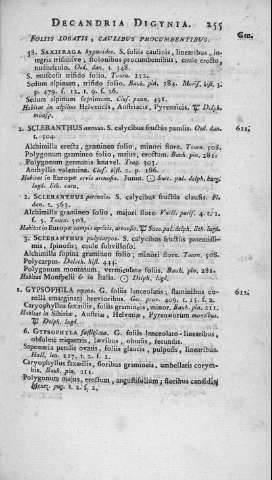 DECANDRIA DIGYNIA. 255
FOLIIS LOBATIS, CAULIBUS PROCUMBENTIBUS. Gen.
38. SAXIFRAGA hypnoides. S. foliis caulinis, linearibus, integris trifidisve, stolonibus procumbentibus, caule erecto,
nudiusculo. Oed. dan. t. 348.
S. muscosa trifido folio. Tourn. 252.
Sedum alpinum, trifido folio. Bauh. pin. 284. Moris. hist. 3.
p. 479. s. 12. t. 9. f. 26.
Sedum alpinum septimum. Clus. pann. 491.
Habitat in alpibus Helveticis, Austriacis, Pyrenaicis. Delph.
2. SCLERANTHUS annuus. S. calycibus fructus patulis. Oed. dan. 611;
t. 504.
Alchimilla erecta, gramineo folio, minori flore. Tourn. 508.
Polygonum gramineo folio, majus, erectum. Bauh. pin. 281.
Polygonum germanis knavel. Trag. 393.
Anthyllis valentina. Clus. hist. 2. p. 186.
Habitat in Europæ arvis arenosis. Junii. Suec. pal. delph. burg.
lugd. Lith. cara.
2. SCLERANTHUS perennis. S. calycibus fructûs clausis. Fl.
dan. t. 563.
Alchimilla gramineo folio, majori flore. Vaill. paris. 4. t. 1.
f. 5. Tourn. 508.
Habitat in Europæ campis apricis, arenosis. Suec. pal. delph. lith. lugd.
3. SCLERANTHUS polycarpos. S. calycibus fructûs patentissimis, spinosis; caule subvilloso.
Alchimilla supina gramineo folio; minori flore. Tourn. 508.
Polycarpon. Dalech. hist. 444.
Polygonum montanum, vermiculatæ foliis. Bauh. pin. 281.
Habitat Monspelii & in Italia. Delph. lugd.
1. GYPSOPHILA repens. G. foliis lanceolatis; staminibus corollâ emarginatâ brevioribus. Ger. prov. 409. t. 15. f. 2. 612;
Caryophyllus saxatilis, foliis gramineis, minor. Bauh. pin. 211.
Habitat in Sibiriæ, Austriæ, Helvetiæ, Pyrenæorum montibus.
Delph. lugd.
6. GYPSOPHILA fastigiata. G. foliis lanceolato-linearibus,
obsoletè triquetris, lævibus, obtusis, secundis.
Saponaria penulis ovatis, foliis glaucis, pulposis, linearibus.
Hall. Jen. 117. t. 2. f. 1.
Caryophyllus saxatilis, floribus gramineis, umbellatis corymbis. Bauh. pin. 211.
Polygonum majus, erectum, angustifolium; floribus candidis.
Mentz. pug. t. 2. f. 2.